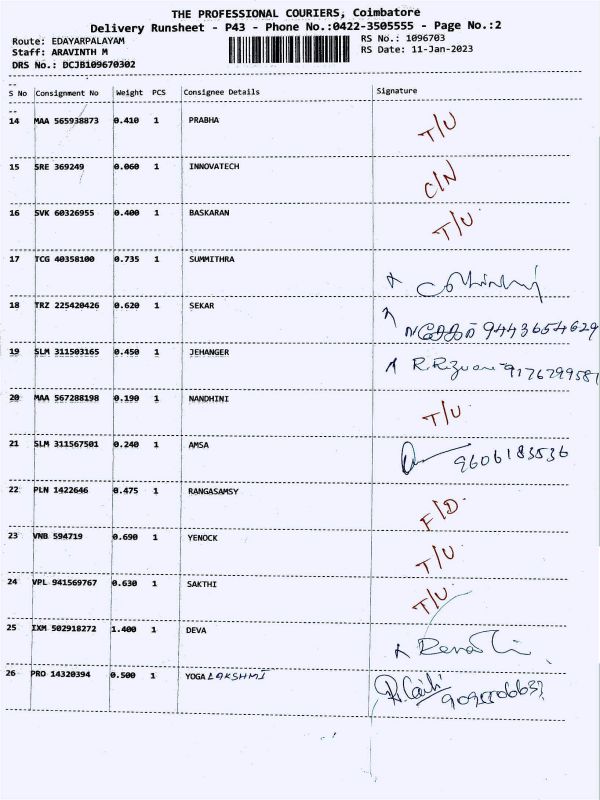 THE PROFESSIONAL COURIERS, Coimbatore
Delivery Runsheet - P43 - Phone No.:0422-3505555 - Page No.:2
Route: EDAYARPALAYAM RS No.: 1096703
Staff: ARAVINTH M RS Date: 11-Jan-2023
DRS No.: DCJB109670302
S No Consignment No Weight PCS Consignee Details Signature
14 MAA 565938873 0.410 1 PRABHA T/U
15 SRE 369249 0.060 1 INNOVATECH C/N
16 SVK 60326955 0.400 1 BASKARAN T/U
17 TCG 40358100 0.735 1 SUMMITHRA
18 TRZ 225420426 0.620 1 SEKAR 9443654629
19 SLM 311503165 0.450 1 JEHANGER R.Rizwan 9176299587
20 MAA 567288198 0.190 1 NANDHINI T/U
21 SLM 311567501 0.240 1 AMSA 9606183536
22 PLN 1422646 0.475 1 RANGASAMSY F/D
23 VNB 594719 0.690 1 YENOCK T/U
24 VPL 941569767 0.630 1 SAKTHI T/U
25 IXM 502918272 1.400 1 DEVA
26 PRO 14320394 0.500 1 YOGA LAKSHMI